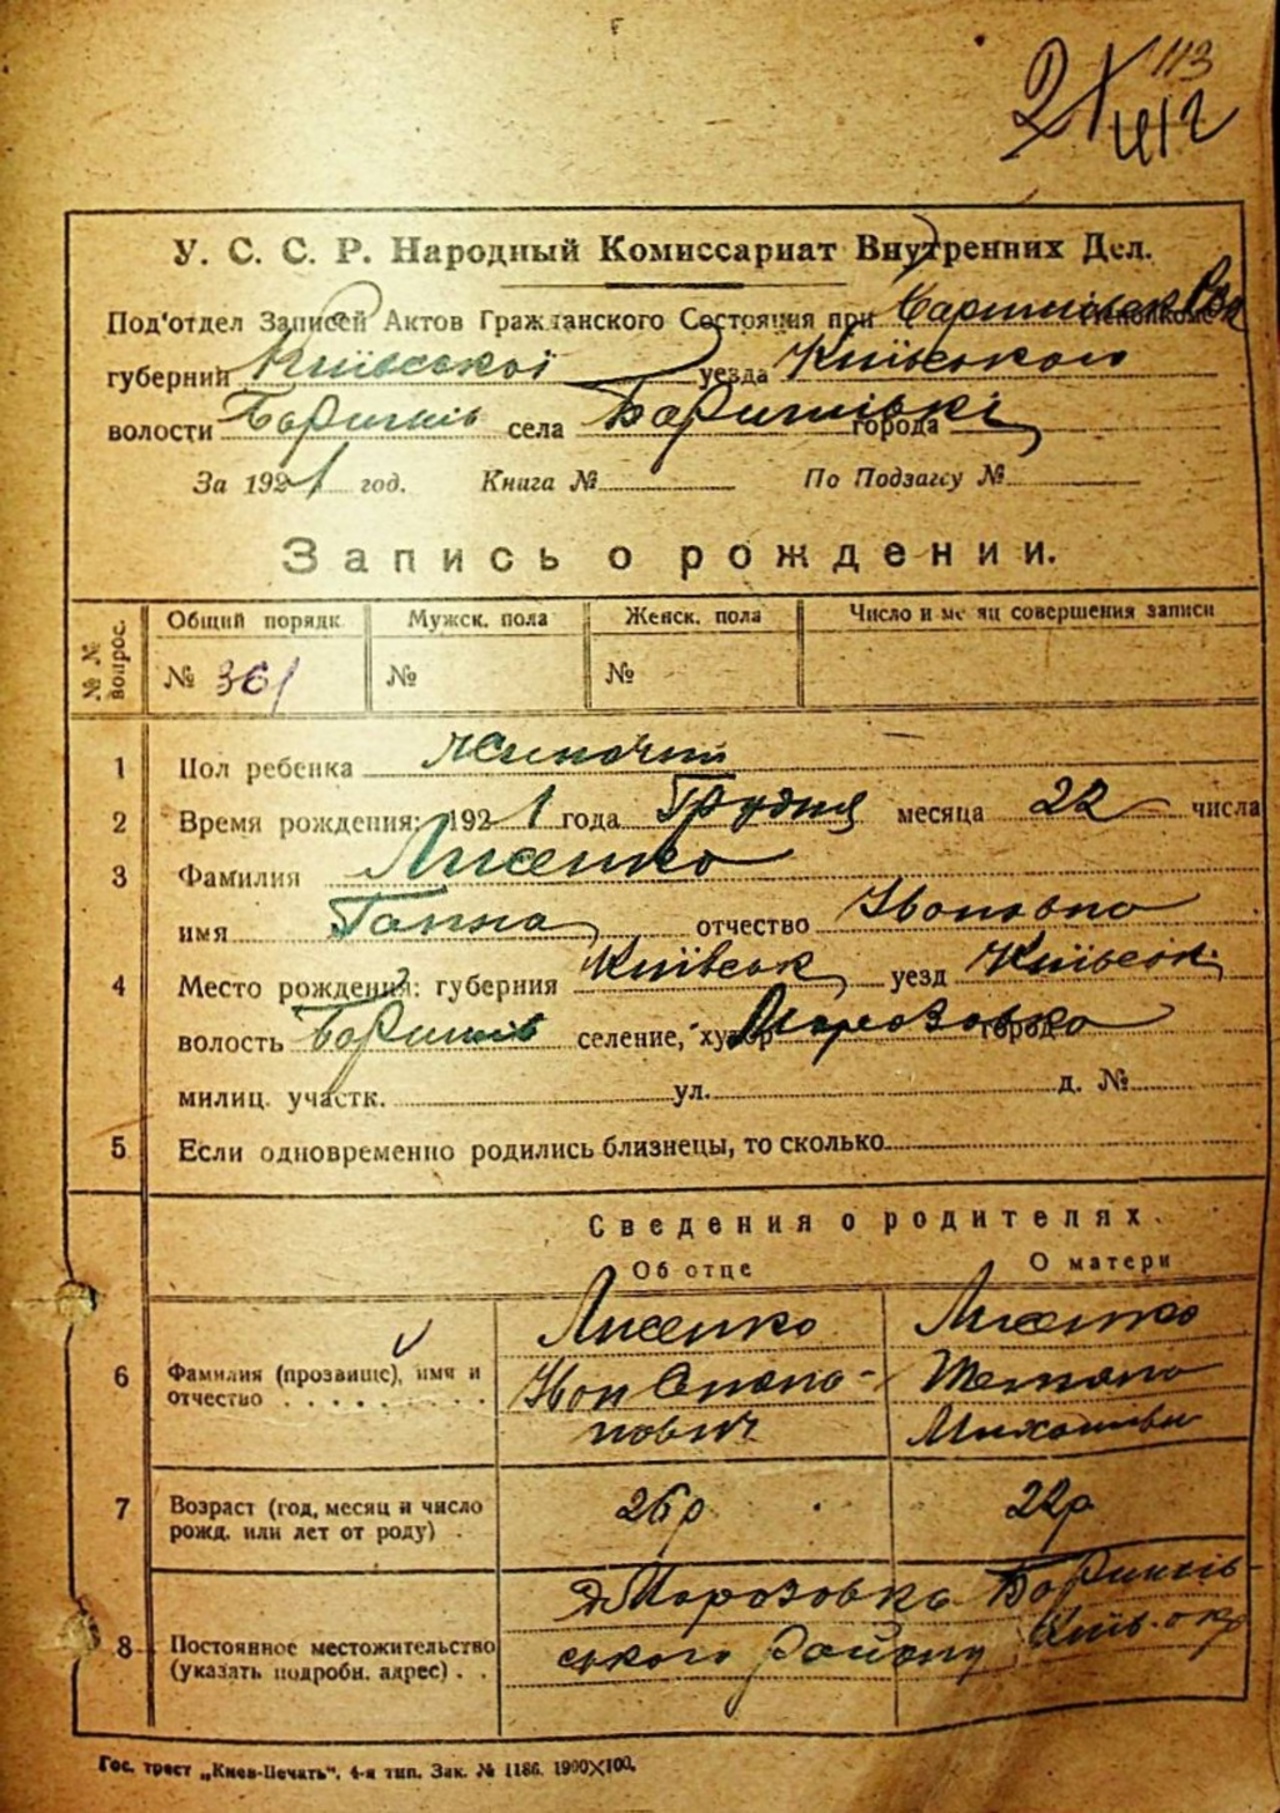 113
У. С. С. Р. Народный Комиссариат Внутренних Дел.
Под'отдел Записей Актов Гражданского Состояния при
губернии Київської уезда Київського
волости Баришів села Баришівкі города
За 1921 год. Книга № По Подзагсу №
Запись о рождении.
№ № вопрос. Общий порядк. Мужск. пола Женск. пола Число и месяц совершения записи
№ 361 № №
1 Пол ребенка жиночий
2 Время рождения: 1921 года Грудня месяца 22 числа
3 Фамилия Лисенко
имя Ганна отчество Івановна
4 Место рождения: губерния Київськ уезд Київськ.
волость Баришів селение, хутор Морозовка город
милиц. участк. ул. д. №
5 Если одновременно родились близнецы, то сколько
Сведения о родителях.
Об отце О матери
Лисенко Лисенко
6 Фамилия (прозвище), имя и Іван Тетяна
отчество нович
7 Возраст (год, месяц и число 26 р 22 р
рожд. или лет от роду)
Морозовка Баришів-
8 Постоянное местожительство ського району Київ. окр
(указать подробн. адрес)
Гос. трест „Киев-Печать", 4-я тип. Зак. № 1186. 1900×100.